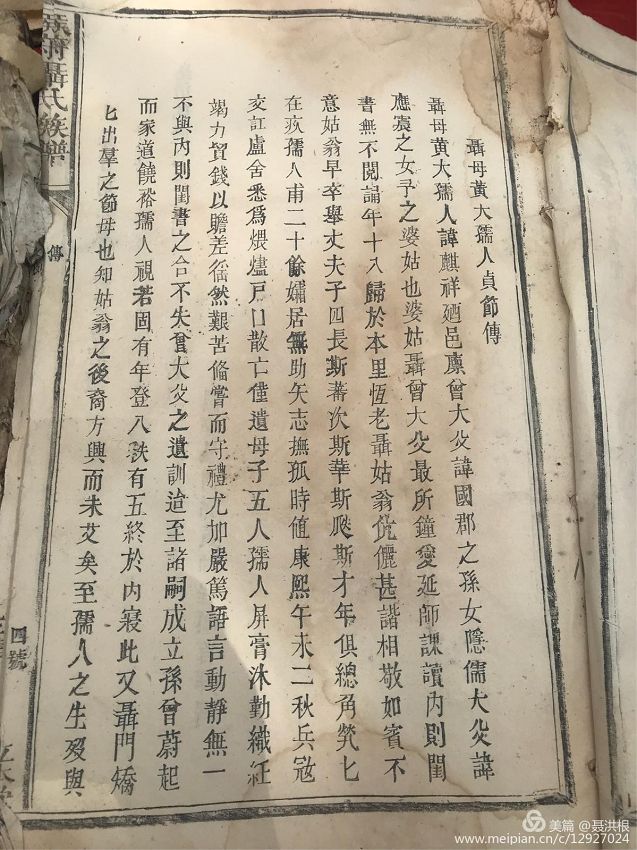 聶母黃大孺人貞節傳
聶母黃大孺人諱麒祥廼邑廪曾大父諱國郡之孫女隱儒大父諱
應寰之女予之婆姑也婆姑聶曾大父最所鐘愛延師課讀內則閨
書無不閱誦年十八歸於本里恆老聶姑翁伉儷甚諧相敬如賓不
意姑翁早卒舉丈夫子四長斯蕃次斯華斯 斯才年俱總角煢匕
在疚孺人甫二十餘孀居無助矢志撫孤時值康熙午未二秋兵寇
交訌廬舍悉爲煨燼戸口散亡僅遺母子五人孺人屏膏沐勤織紝
竭力貿錢以贍差徭然艱苦僃嘗而守禮尤加嚴篤語言動靜無一
不與內則閨書之合不失會大父之遺訓迨至諸嗣成立孫曾蔚起
而家道饒裕孺人視若固有年登八秩有五終於內寢此又聶門矯
匕出羣之節母也知姑翁之後裔方興而未艾矣至孺人之生歿與
聶氏族譜
傳
四號
美篇 @聂洪根
www.meipian.cn/c/12927024